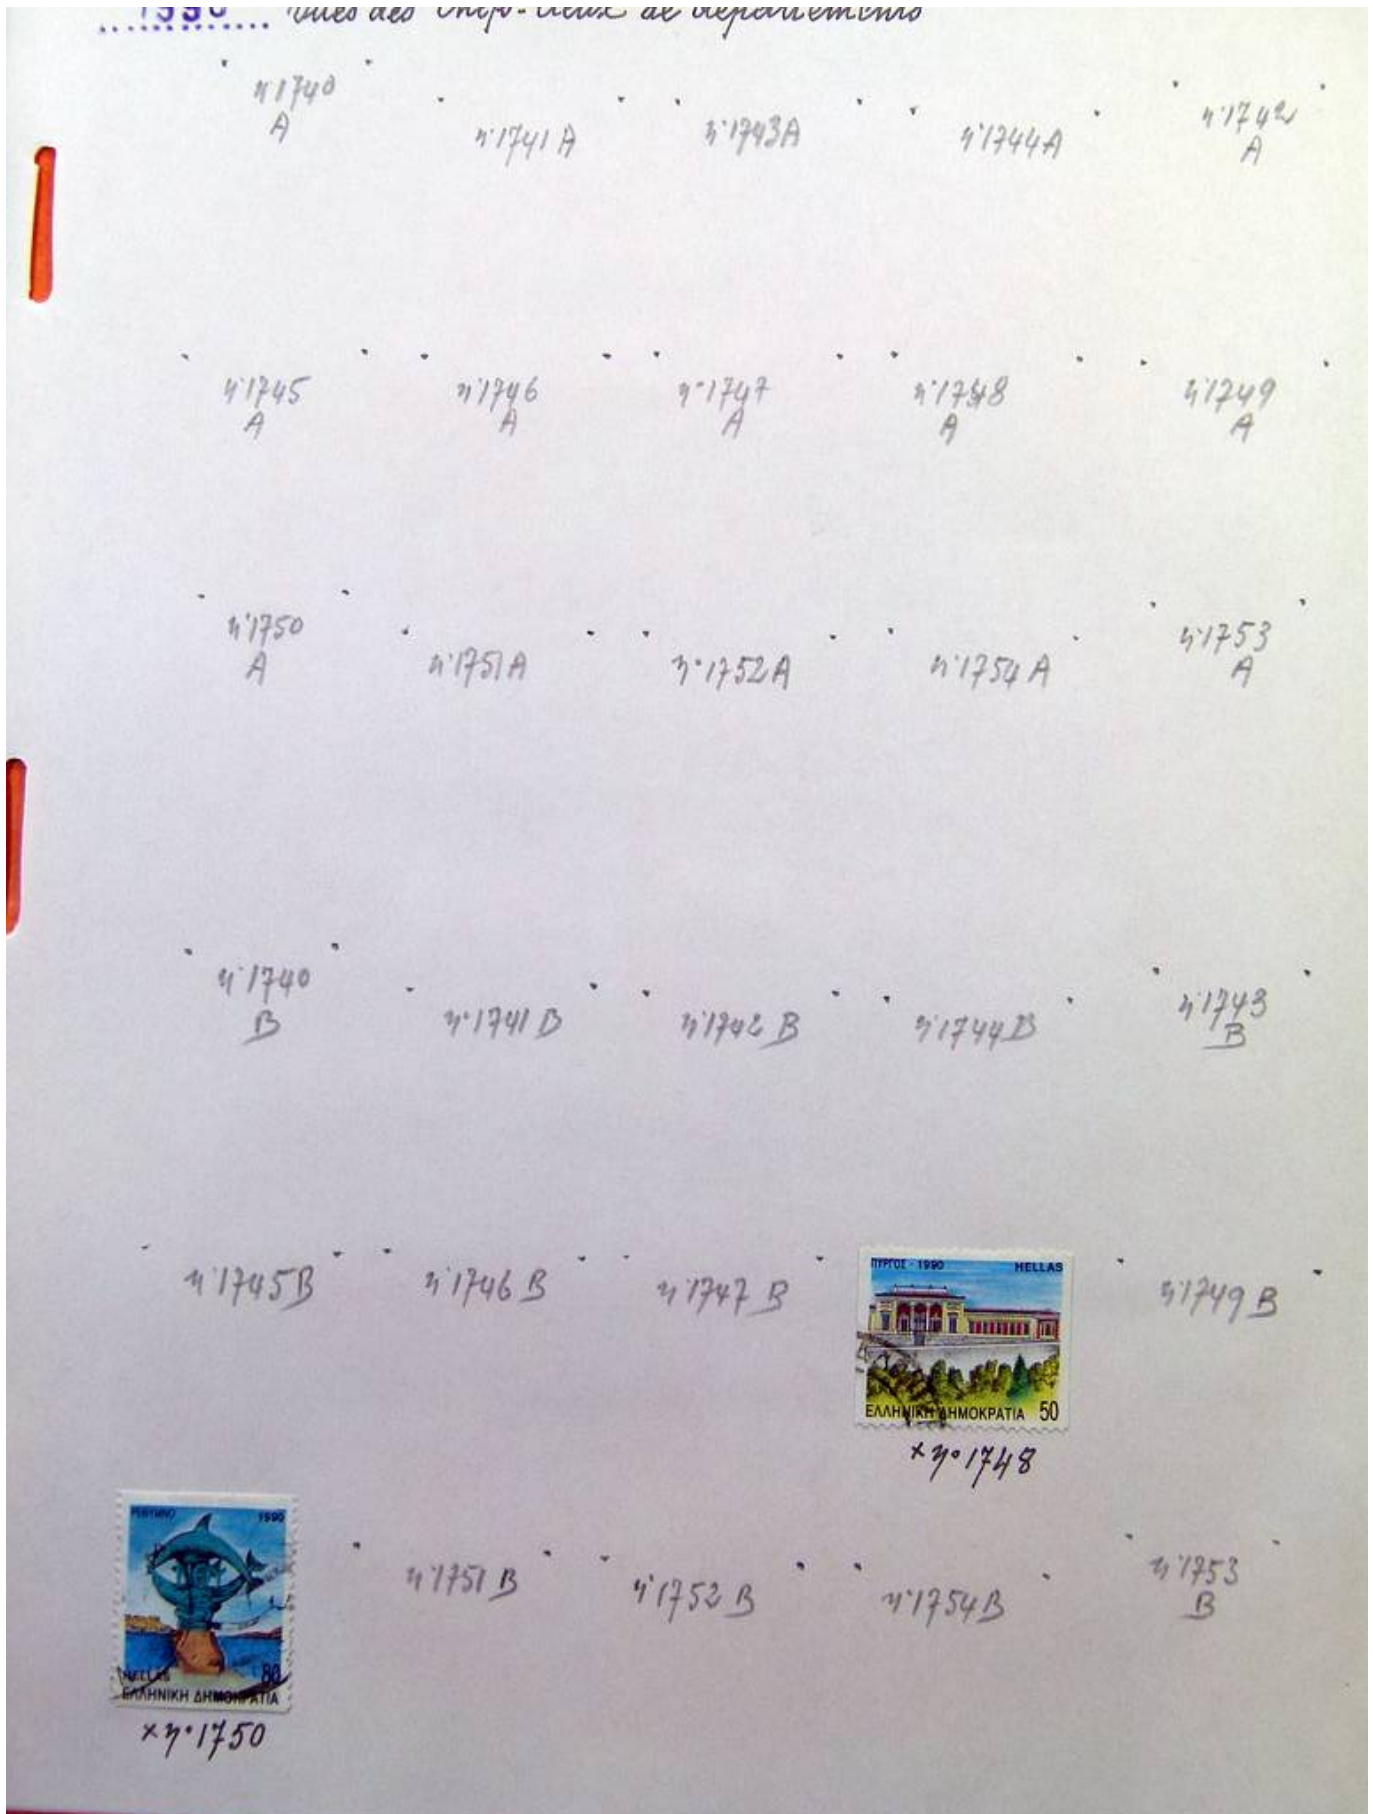 1990 Vues des Chefs-lieux de départements
n°1740
A
n°1741 A
n°1743A
n°1744A
n°1742
A
n°1745
A
n°1746
A
n°1747
A
n°1748
A
n°1749
A
n°1750
A
n°1751A
n°1752A
n°1754 A
n°1753
A
n°1740
B
n°1741 B
n°1742 B
n°1744B
n°1743
B
n°1745B
n°1746 B
n°1747 B
ΠΥΡΓΟΣ - 1990 HELLAS
ΕΛΛΗΝΙΚΗ ΔΗΜΟΚΡΑΤΙΑ 50
x n°1748
n°1749 B
ΡΕΘΥΜΝΟ 1990
HELLAS 80
ΕΛΛΗΝΙΚΗ ΔΗΜΟΚΡΑΤΙΑ
x n°1750
n°1751 B
n°1752 B
n°1754B
n°1753
B